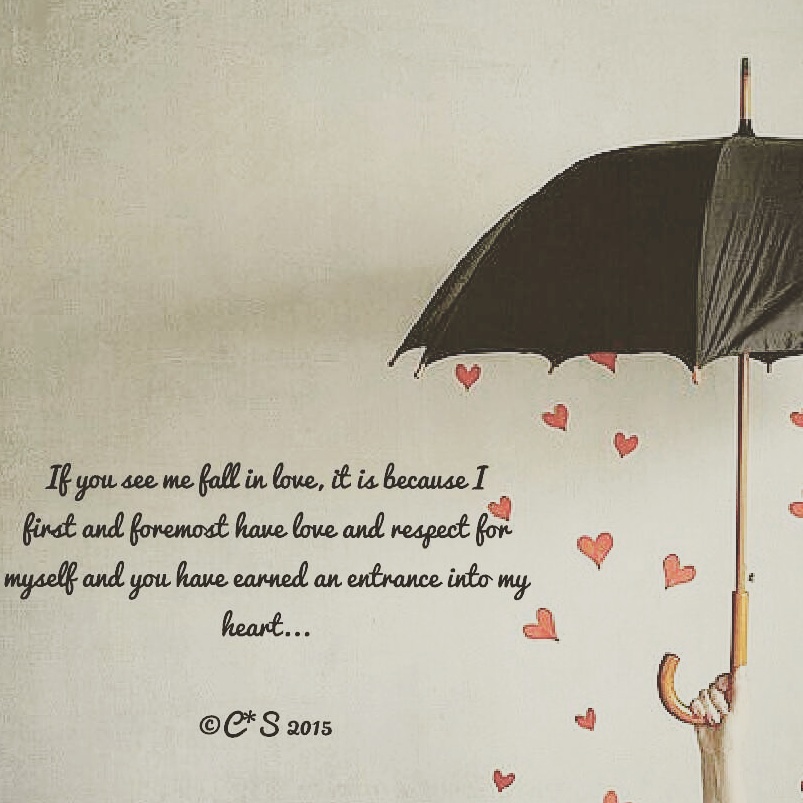 If you see me fall in love, it is because I
first and foremost have love and respect for
myself and you have earned an entrance into my
heart...
©C*S 2015